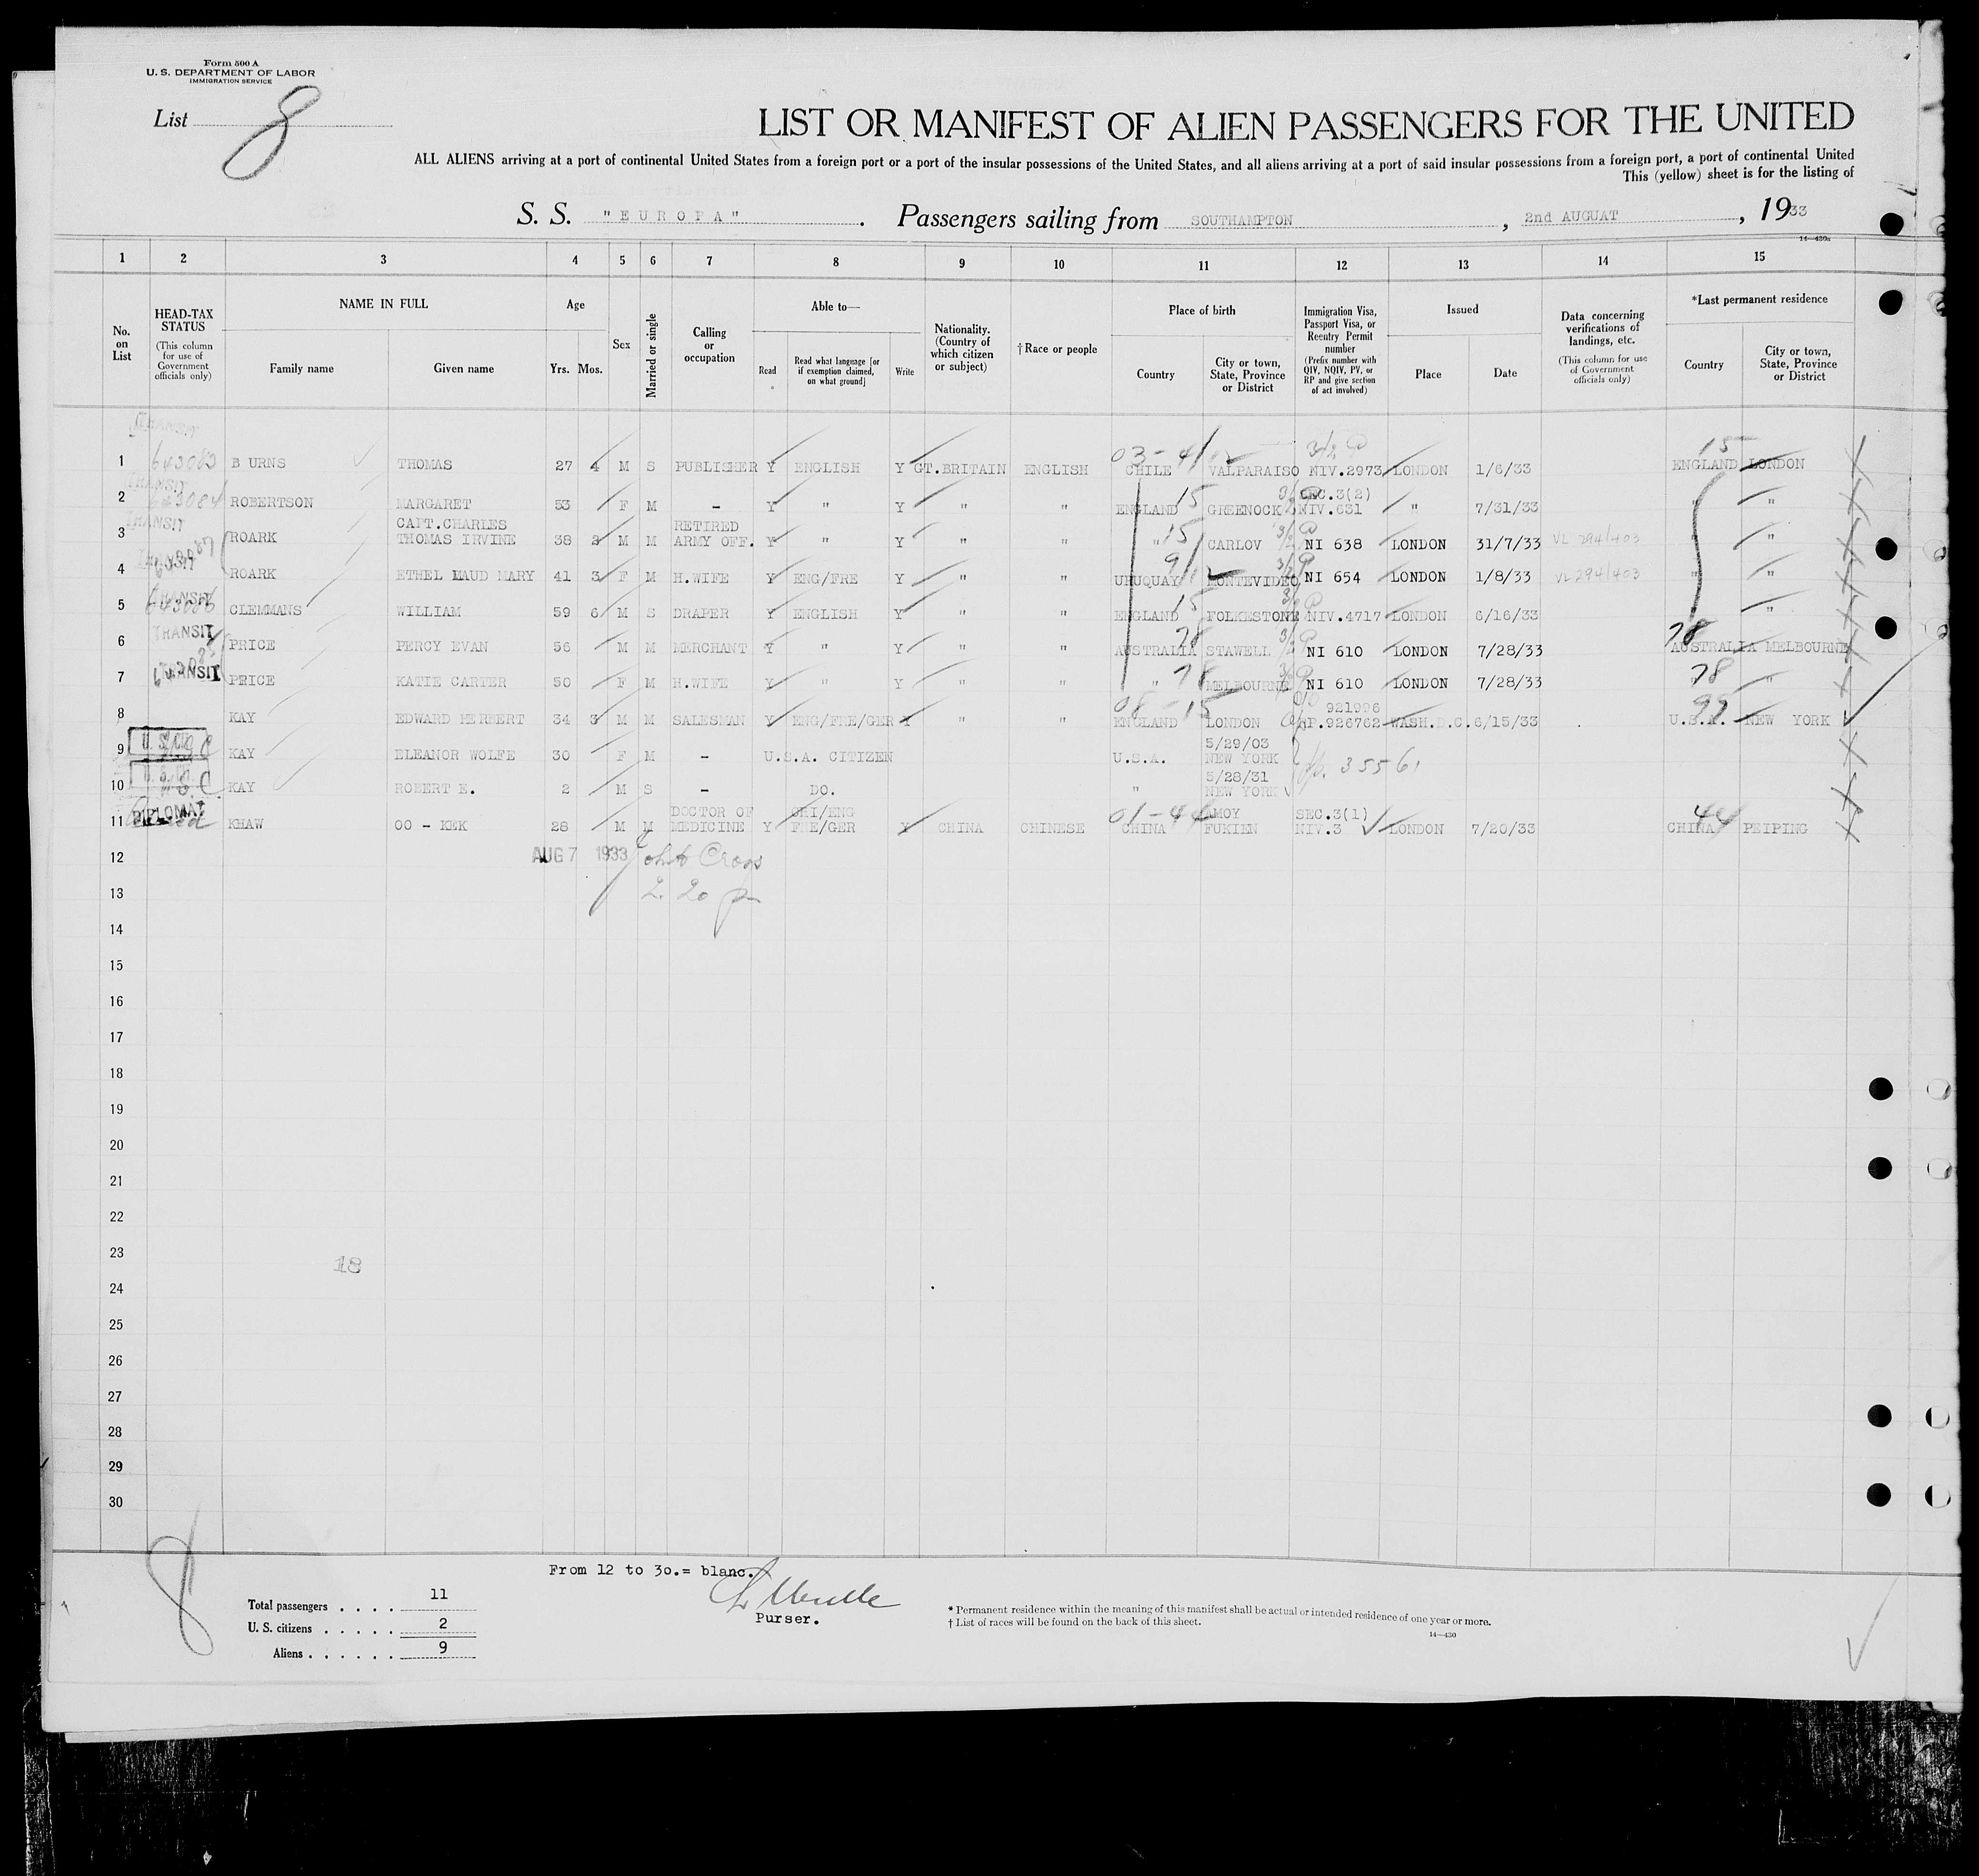 Form 500 A
U. S. DEPARTMENT OF LABOR
IMMIGRATION SERVICE
List 8
LIST OR MANIFEST OF ALIEN PASSENGERS FOR THE UNITED
ALL ALIENS arriving at a port of continental United States from a foreign port or a port of the insular possessions of the United States, and all aliens arriving at a port of said insular possessions from a foreign port, a port of continental United
This (yellow) sheet is for the listing of
S. S. "EUROPA". Passengers sailing from SOUTHAMPTON, 2nd AUGUAT, 1933
14—430a
1 2 3 4 5 6 7 8 9 10 11 12 13 14 15
No. on List
HEAD-TAX STATUS (This column for use of Government officials only)
NAME IN FULL Family name Given name
Age Yrs. Mos.
Sex
Married or single
Calling or occupation
Able to— Read Read what language [or if exemption claimed, on what ground] Write
Nationality. (Country of which citizen or subject)
†Race or people
Place of birth Country City or town, State, Province or District
Immigration Visa, Passport Visa, or Reentry Permit number (Prefix number with QIV, NQIV, PV, or RP and give section of act involved)
Issued Place Date
Data concerning verifications of landings, etc. (This column for use of Government officials only)
*Last permanent residence Country City or town, State, Province or District
TRANSIT 03-41 3/2 15
1 643083 B URNS THOMAS 27 4 M S PUBLISHER Y ENGLISH Y GT.BRITAIN ENGLISH CHILE VALPARAISO NIV.2973 LONDON 1/6/33 ENGLAND LONDON
TRANSIT 15 SEC.3(2)
2 643084 ROBERTSON MARGARET 53 F M - Y " Y " " ENGLAND GREENOCK NIV.631 " 7/31/33 " "
TRANSIT CAIT.CHARLES RETIRED 15
3 ROARK THOMAS IRVINE 38 3 M M ARMY OFF. Y " Y " " " CARLOV NI 638 LONDON 31/7/33 VL 294/403 " "
TRANSIT 91
4 ROARK ETHEL MAUD MARY 41 3 F M H.WIFE Y ENG/FRE Y " " URUQUAY MONTEVIDEO NI 654 LONDON 1/8/33 VL 294/403 " "
TRANSIT 15
5 CLEMMANS WILLIAM 59 6 M S DRAPER Y ENGLISH Y " " ENGLAND FOLKESTONE NIV.4717 LONDON 6/16/33 "
TRANSIT 78 78
6 PRICE PERCY EVAN 56 M M MERCHANT Y " Y " " AUSTRALIA STAWELL NI 610 LONDON 7/28/33 AUSTRALIA MELBOURNE
TRANSIT 78 78
7 PRICE KATIE CARTER 50 F M H.WIFE Y " Y " " " MELBOURNE NI 610 LONDON 7/28/33 "
08-15 921996 99
8 KAY EDWARD HERBERT 34 3 M M SALESMAN Y ENG/FRE/GER Y " " ENGLAND LONDON RP.926762 WASH.D.C. 6/15/33 U.S.A. NEW YORK
U.S. 5/29/03
9 KAY ELEANOR WOLFE 30 F M - U.S.A. CITIZEN U.S.A. NEW YORK
5/28/31 35561
10 KAY ROBERT E. 2 M S - DO. " NEW YORK
DIPLOMAT DOCTOR OF CHI/ENG 01-44 AMOY SEC.3(1) 44
11 KHAW OO - KEK 28 M M MEDICINE Y FRE/GER Y CHINA CHINESE CHINA FUKIEN NIV.3 LONDON 7/20/33 CHINA PEIPING
12 AUG 7 1933
13 2.20 pm
14
15
16
17
18
19
20
21
22
23 18
24
25
26
27
28
29
30
From 12 to 3o.= blanc.
8
Total passengers . . . . 11
U. S. citizens . . . . . 2
Aliens . . . . . . 9
Purser.
* Permanent residence within the meaning of this manifest shall be actual or intended residence of one year or more.
† List of races will be found on the back of this sheet.
14—430